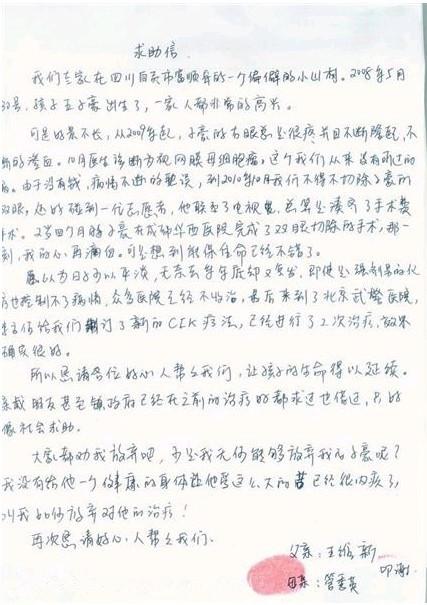 求助信
我们王家在四川自贡市富顺县的一个偏僻的小山村。2008年5月
30号,孩子王子豪出生了,一家人都非常的高兴。
可是好景不长,从2009年起,子豪的右眼总是很疼并且不断隆起,不
断的渗血。10月医生诊断为视网膜母细胞瘤,这个我们从来没有听过的
病。由于没有钱,病情不断的耽误,到2010年10月我们不得不切除子豪的
双眼,还好碰到一位志愿者,他联系了电视台,总算是凑齐了手术费
手术。2岁四个月的子豪在成都华西医院完成了双眼切除的手术,那一
刻,我的心再滴血。可是想到能保住命已经不错了。
原以为日子可以平淡,无奈去年年底却又复发,即使是强剂量的化
疗也控制不了病情,众多医院已经不收治,最后来到了北京武警医院,
主任给我们制订了新的CIK疗法,已经进行了2次治疗,效果
确实很好。
所以恳请各位好心人帮帮我们,让孩子的生命得以延续。
亲戚朋友甚至镇政府已经在之前的治疗时都求过也借过,只好
像社会求助。
大家都劝我放弃吧,可是我无何能够放弃我的子豪呢?
我没有给他一个健康的身体让他受这么大的苦已经很内疚了,
叫我如何放弃对他的治疗!
再次恳请好心人帮帮我们。
父亲:王维新
母亲:管秀英
叩谢